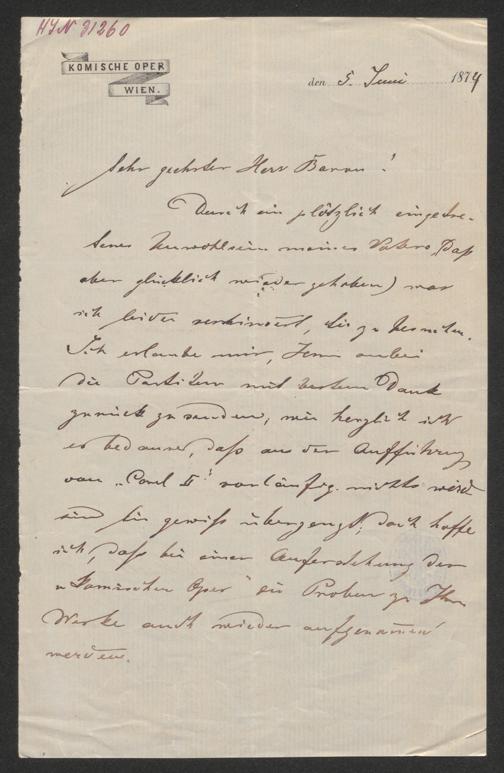 HIN 31260
KOMISCHE OPER
WIEN.
den 5. Juni 1874
Sehr geehrter Herr Baron!
Durch ein plötzlich eingetre-
tenes Unwohlsein meines Vaters (das
aber glücklich wieder gehoben) war
ich leider verhindert, Sie zu
Ich erlaube mir, Ihnen anbei
die Partitur mit bestem Dank
zurück zu senden, wie herzlich ich
es bedauere, daß aus der Aufführung
von „Carl II“ vorläufig nichts wird
sind Sie gewiß überzeugt; doch hoffe
ich, daß bei einer Auferstehung der
„Komischen Oper“ die Proben zu Ihrem
Werke auch wieder aufgenommen
werden.